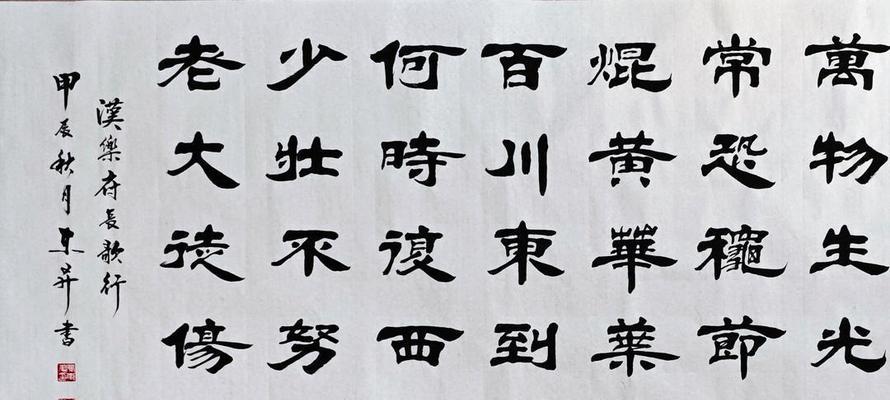 萬物生光
常恐穐節
焜黄華葉
百川東到
何時復西
少壯不努
老大徒傷
漢樂府長歌行
甲辰秋月东昇书